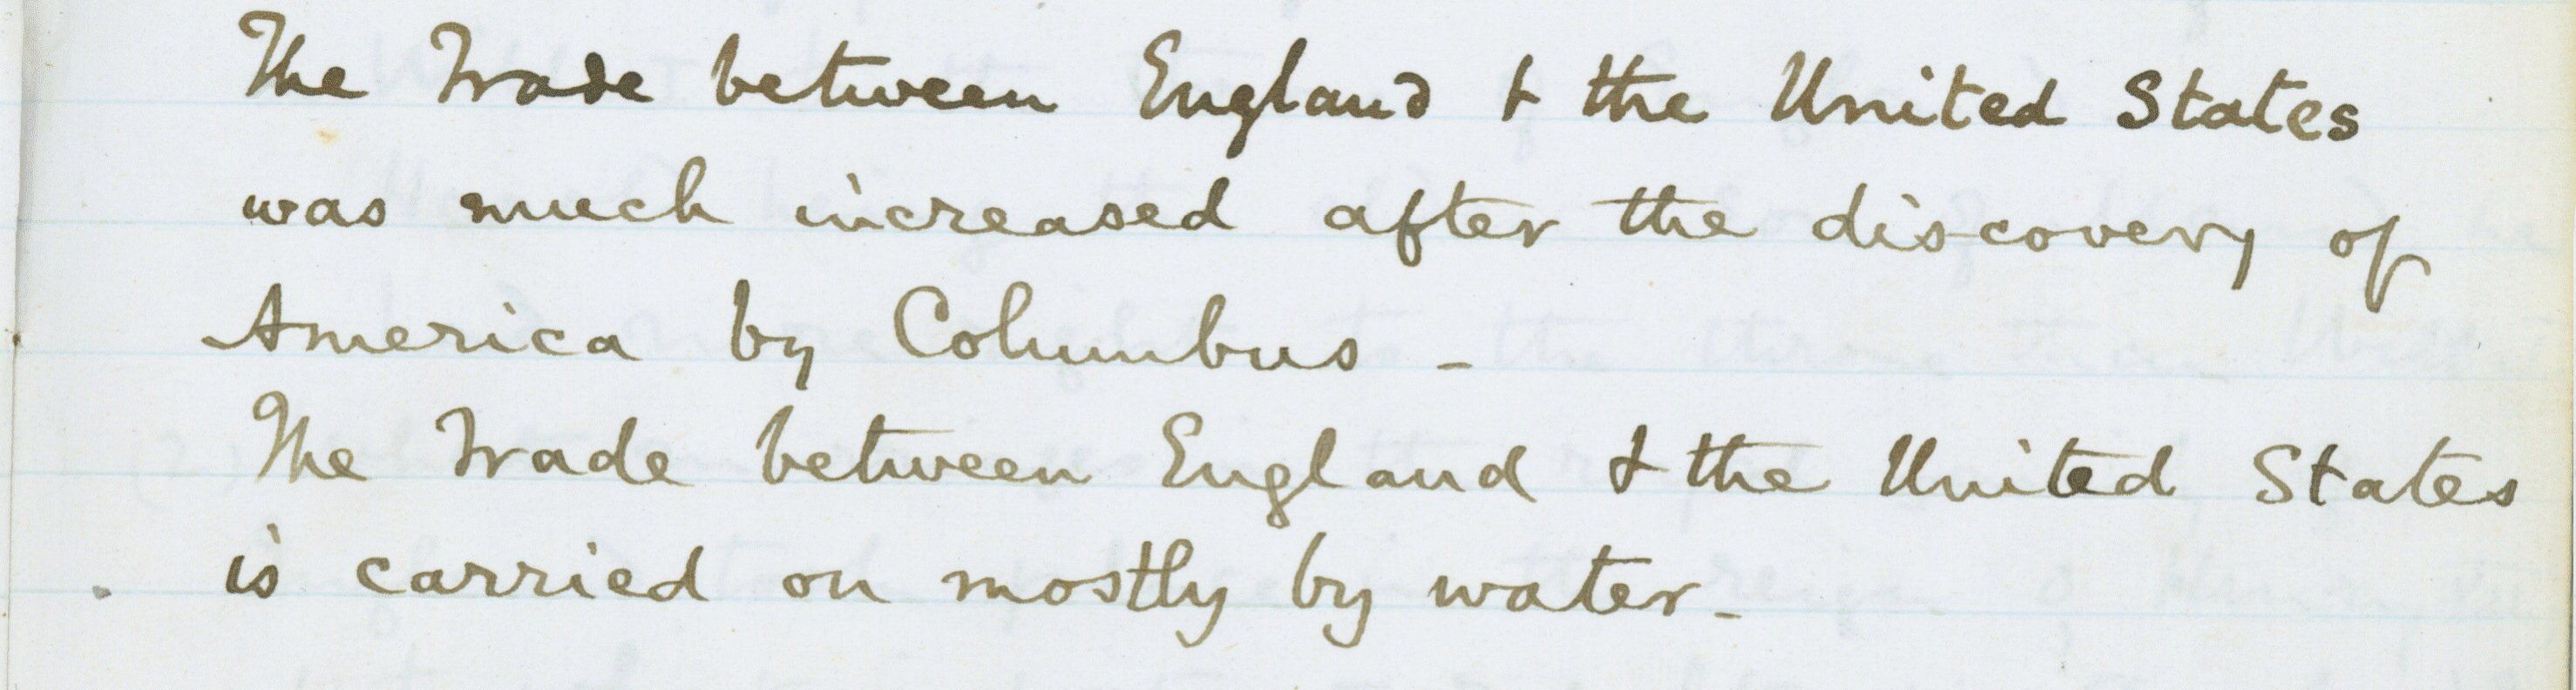 The Trade between England & the United States
was much increased after the discovery of
America by Columbus -
The Trade between England & the United States
is carried on mostly by water -